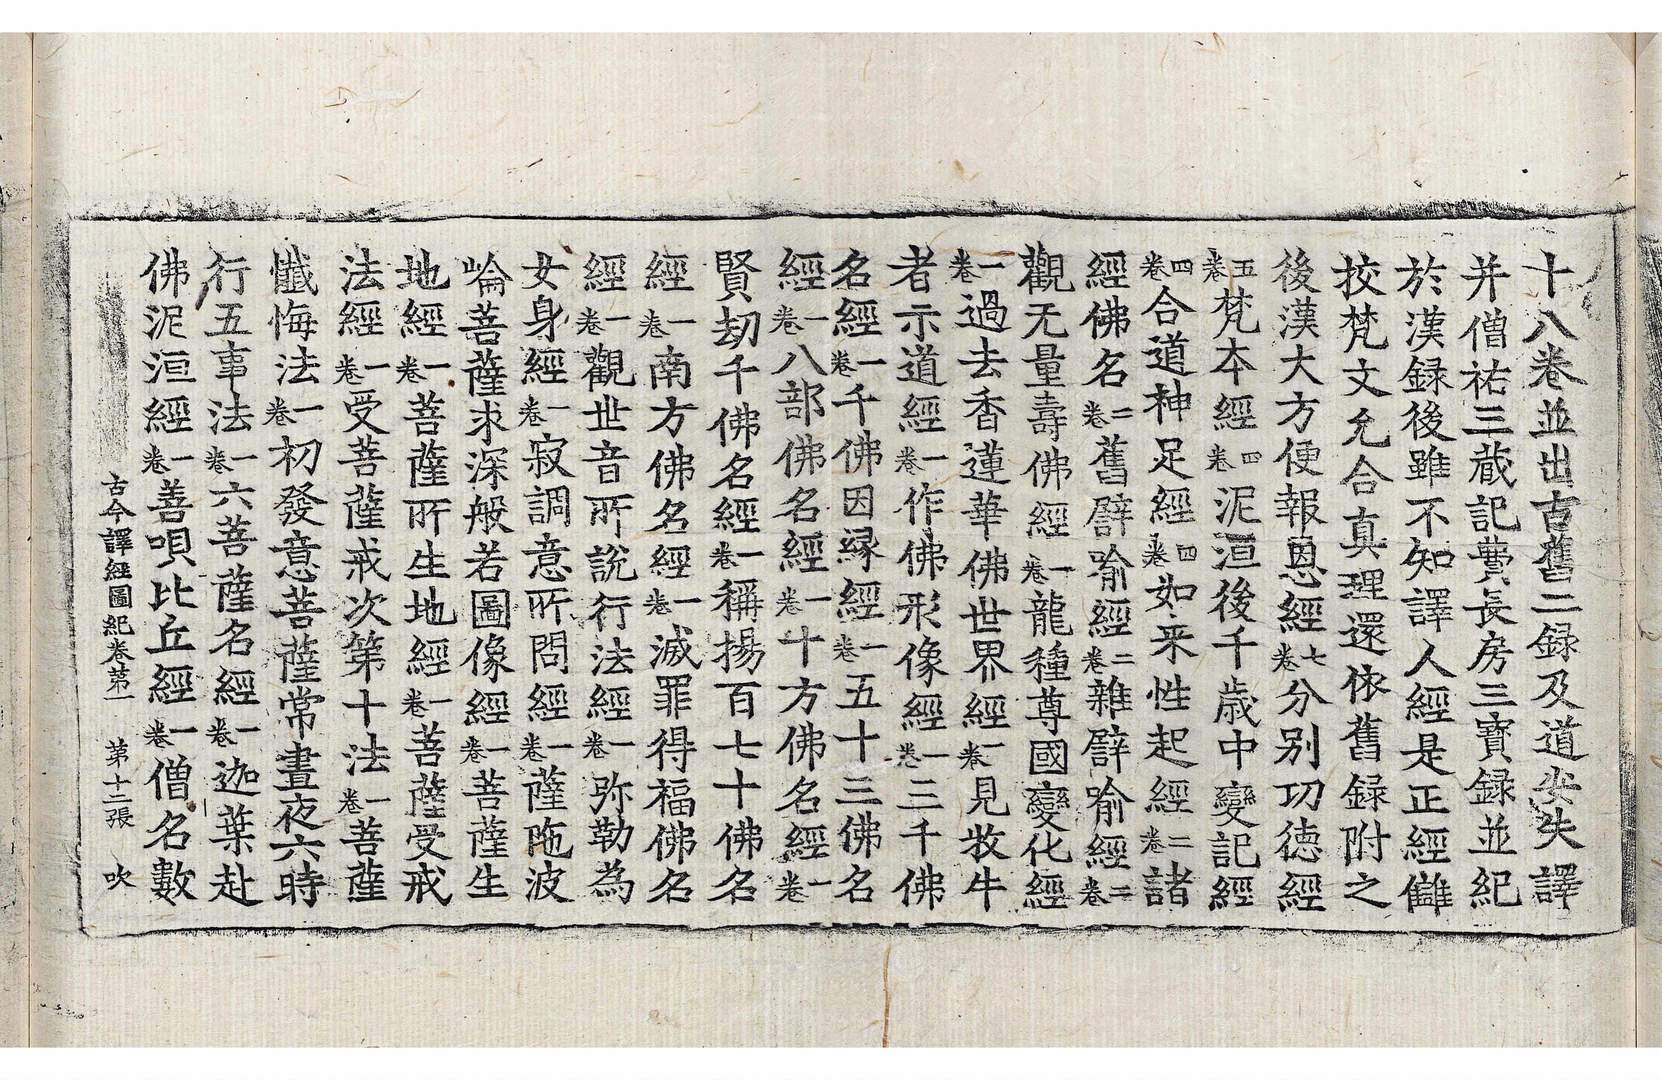 十八卷並出古舊二録及道安失譯
并僧祐三藏記費長房三寶録並紀
於漢録後雖不知譯人經是正經讎
挍梵文允合真理還依舊録附之
後漢大方便報恩經七卷分别功德經
五卷梵本經四卷泥洹後千歳中變記經
四卷合道神足經四卷如来性起經二卷諸
經佛名二卷舊譬喻經二卷雜譬喻經二卷
觀无量壽佛經一卷龍種尊國變化經
一卷過去香蓮華佛世界經一卷見牧牛
者示道經一卷作佛形像經一卷三千佛
名經一卷千佛因縁經一卷五十三佛名
經一卷八部佛名經一卷十方佛名經一卷
賢劫千佛名經一卷稱揚百七十佛名
經一卷南方佛名經一卷滅罪得福佛名
經一卷觀世音所說行法經一卷弥勒為
女身經一卷寂調意所問經一卷薩陁波
崘菩薩求深般若圖像經一卷菩薩生
地經一卷菩薩所生地經一卷菩薩受戒
法經一卷受菩薩戒次第十法一卷菩薩
懺悔法一卷初發意菩薩常晝夜六時
行五事法一卷六菩薩名經一卷迦葉赴
佛泥洹經一卷善唄比丘經一卷僧名數
古今譯經圖紀卷苐一 苐十二張 吹